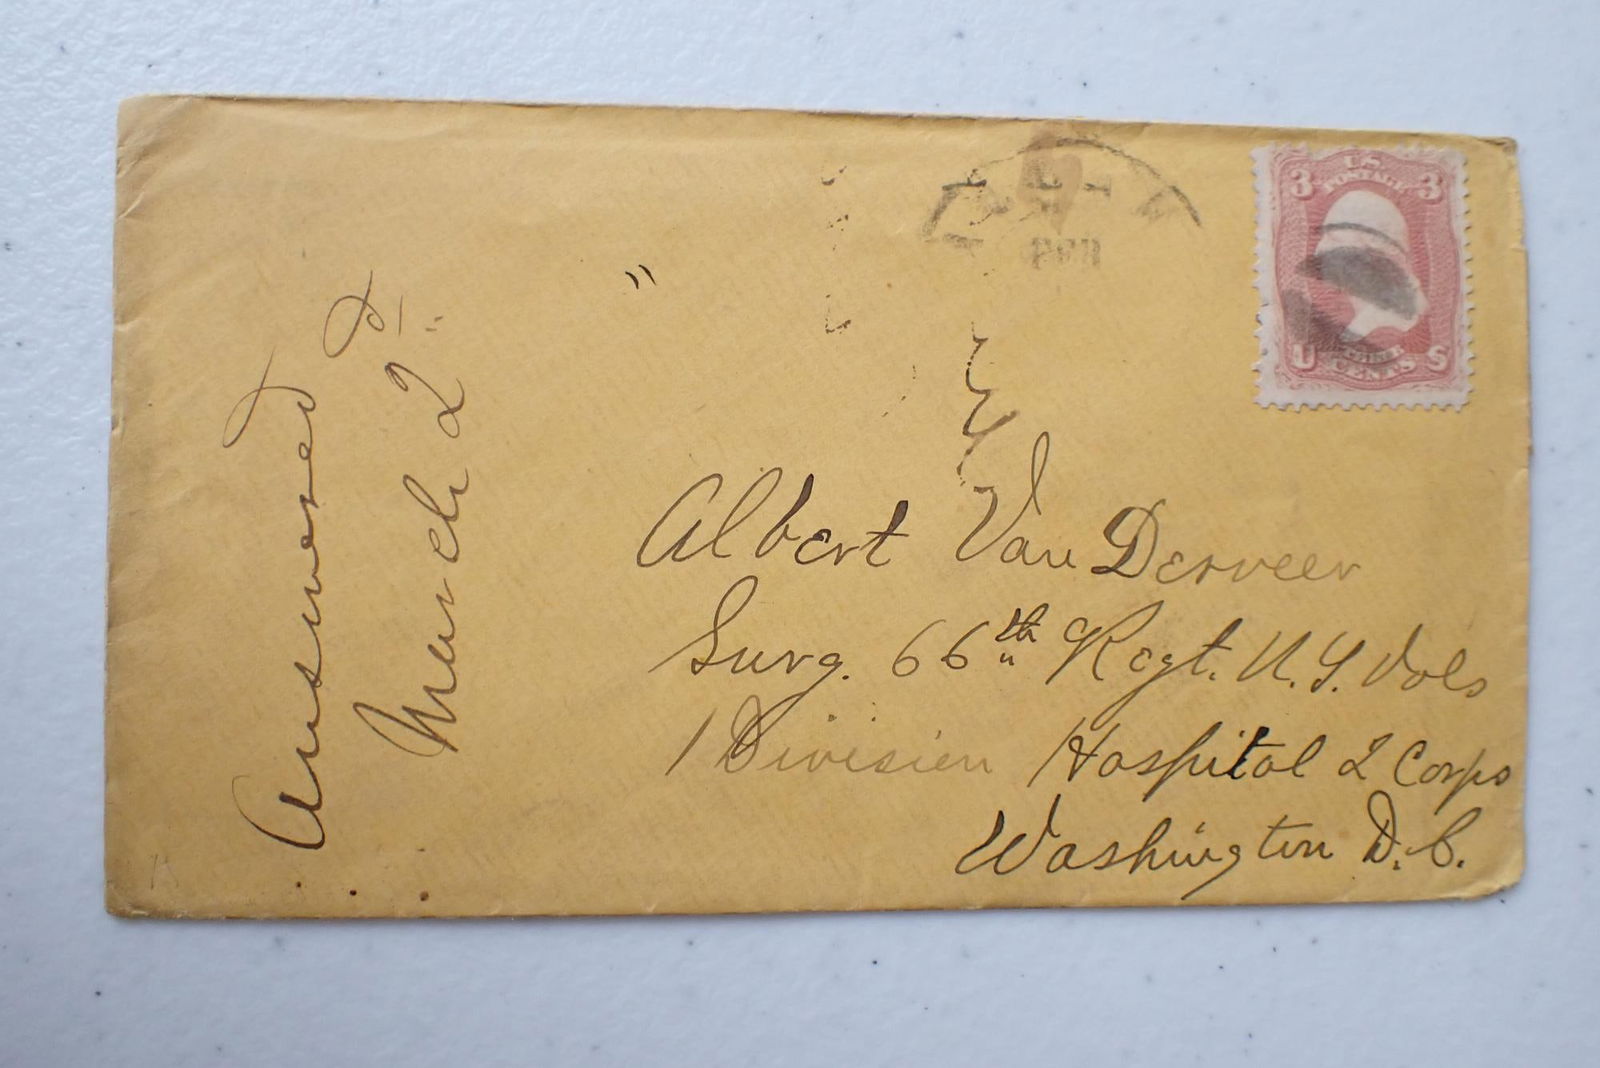 Answered
March 2
U.S.
POSTAGE
3 3
U THREE S
CENTS
Albert Van Derveer
Surg. 66th Regt. N.Y. Vols
1 Division Hospital 2 Corps
Washington D.C.